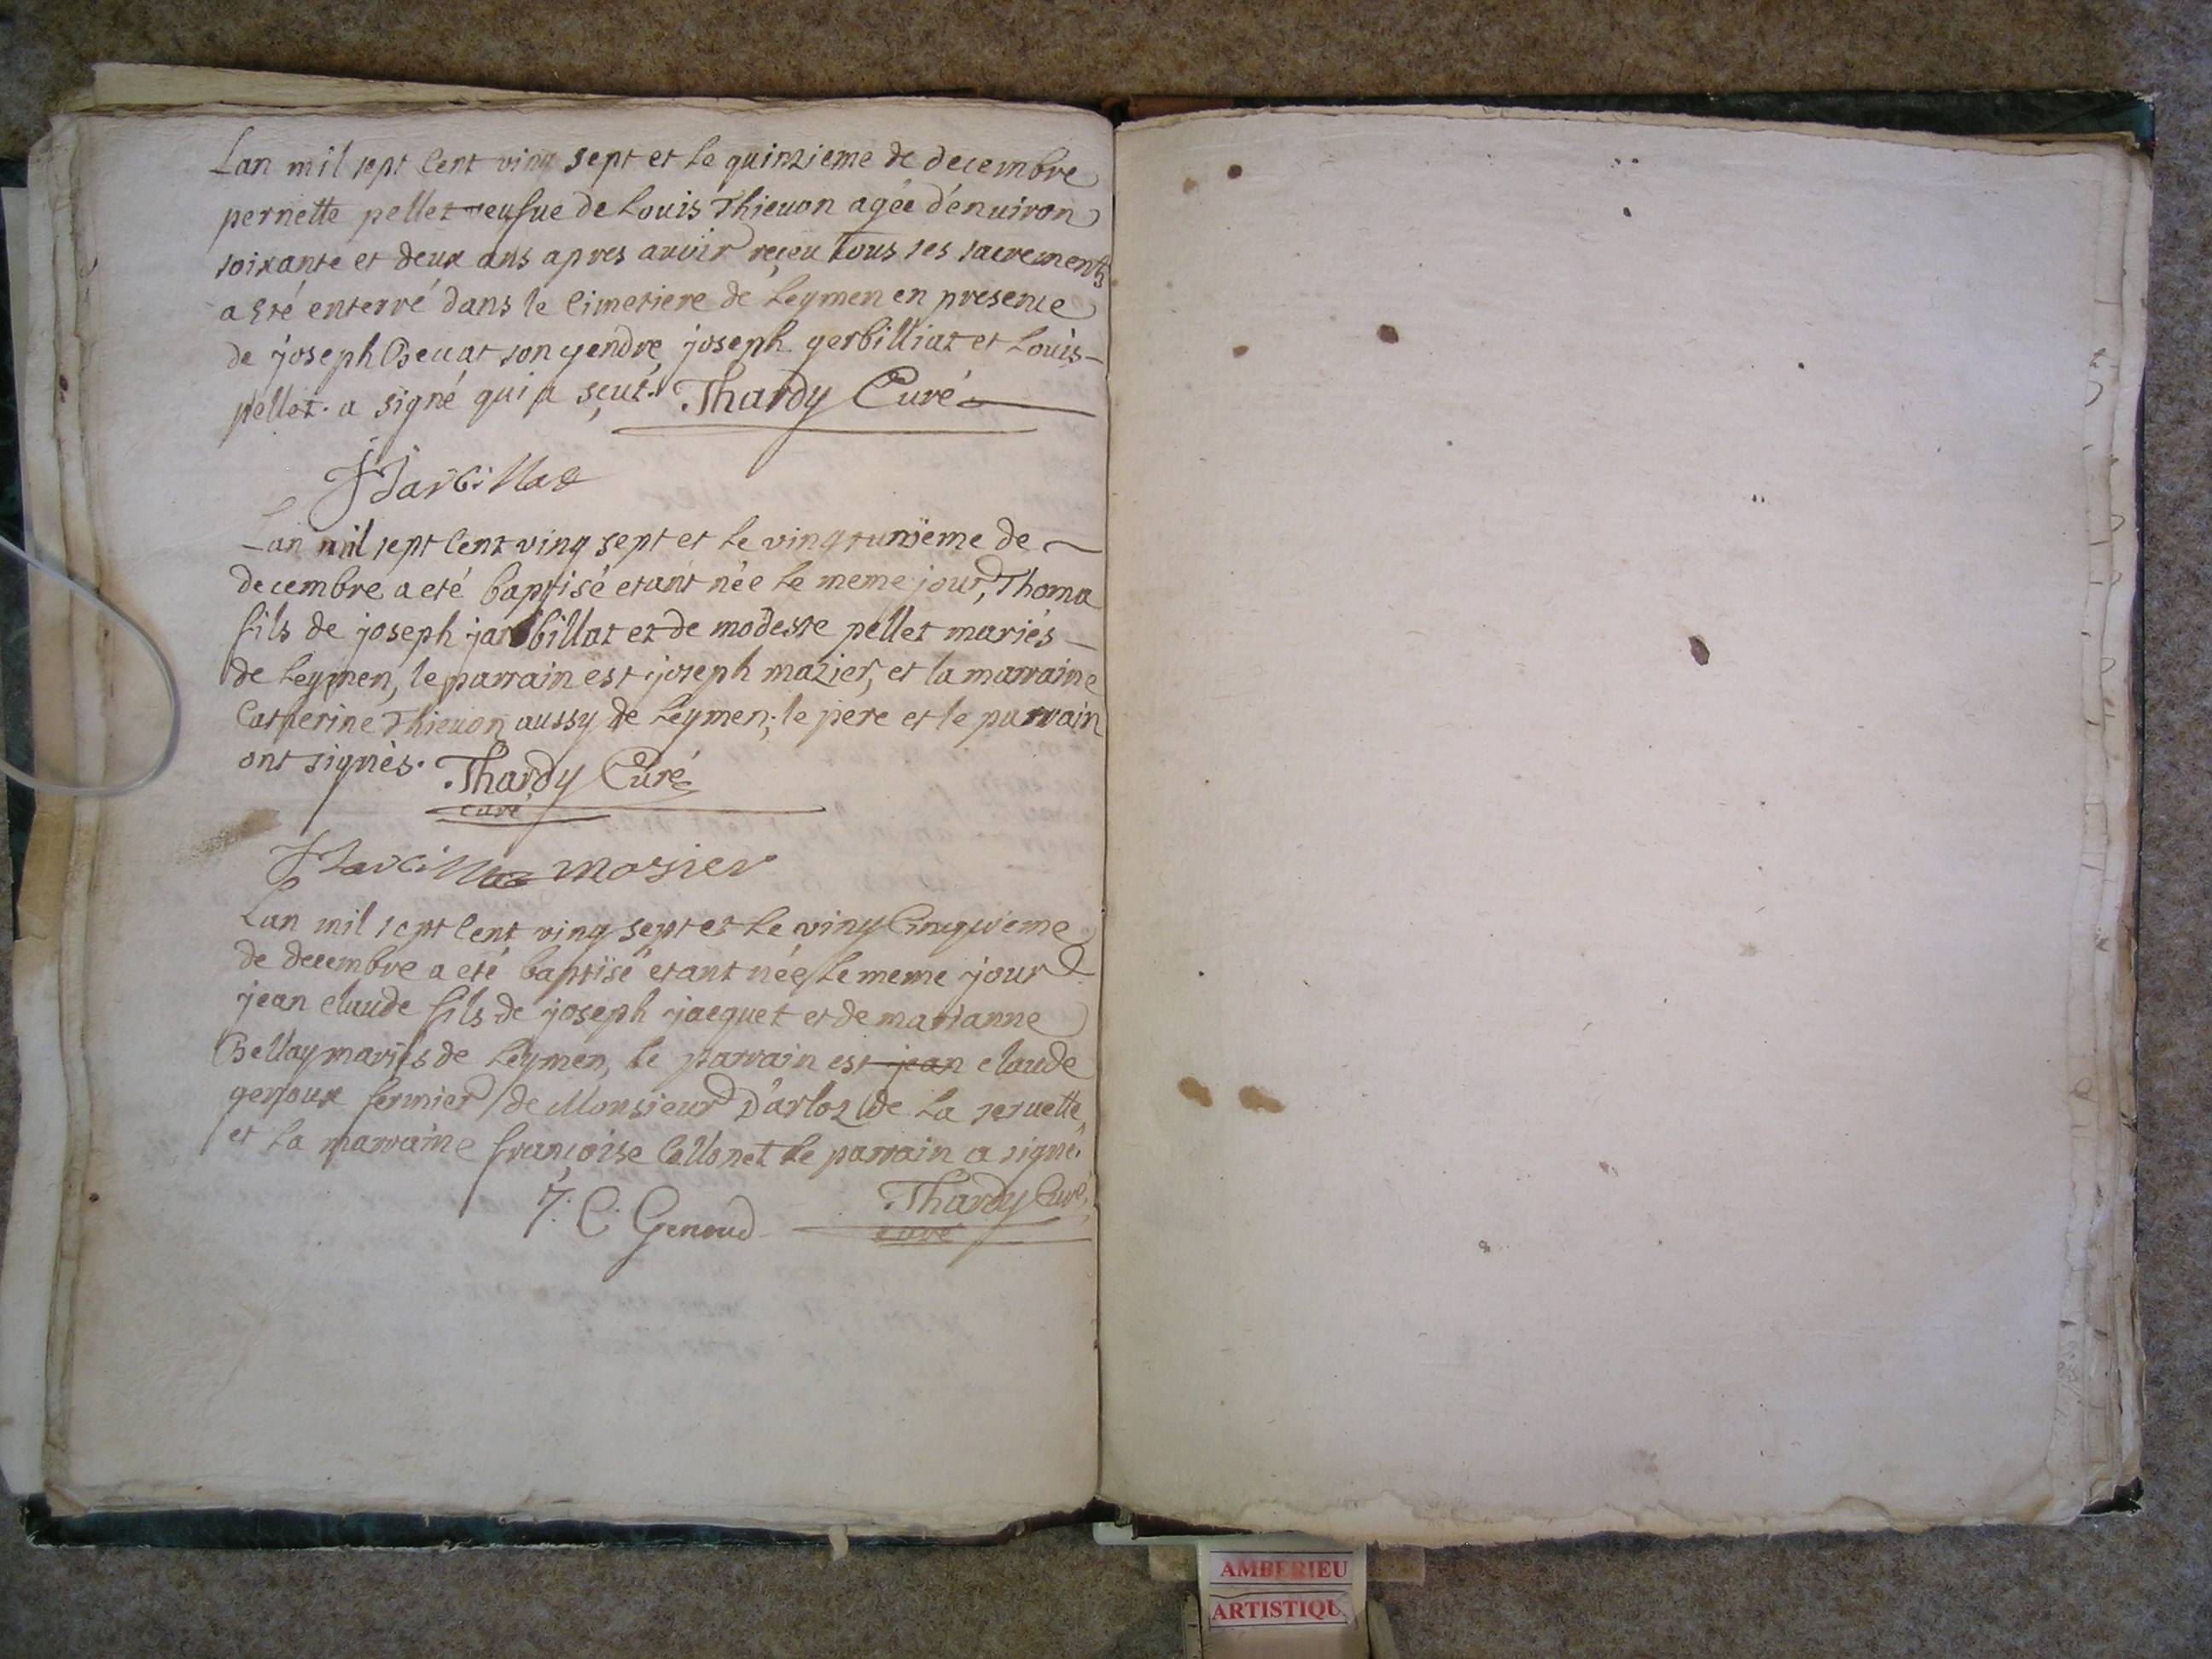 Lan mil sept Cent ving sept et le quinzieme de decembre
pernette pellet veufue de Louis Thieuon agée dénuiron
soixante et deux ans apres auoir reçeu tous ses sacrements
a été enterré dans le Cimetiere de Leymen en presence
de joseph Beuat son gendre, joseph gerbilliat et Louis
pellet. a signé qui a sçut. Thardy Curé
J Jarbillat
Lan mil sept Cent ving sept et le vingtunieme de
decembre a eté baptisé etant née le meme jour, Thoma
fils de joseph jarbillat et de modeste pellet mariés
de Leymen, le parrain est joseph mazier, et la marraine
Catherine Thieuon aussy de Leymen; le pere et le parrain
ont signés. Thardy Curé
curé
J Jarbillat mosier
Lan mil sept Cent ving sept et le ving Cinquieme
de decembre a eté baptisé etant née le meme jour
jean claude fils de joseph jacquet et de marianne
Bellay mariés de Leymen, le parrain est jean claude
genoux fermier de Monsieur D'arloz de La seruette,
et La marraine françoise Collonet le parrain a signé.
J. C. Genoud Thardy Curé
curé
AMBERIEU
ARTISTIQU